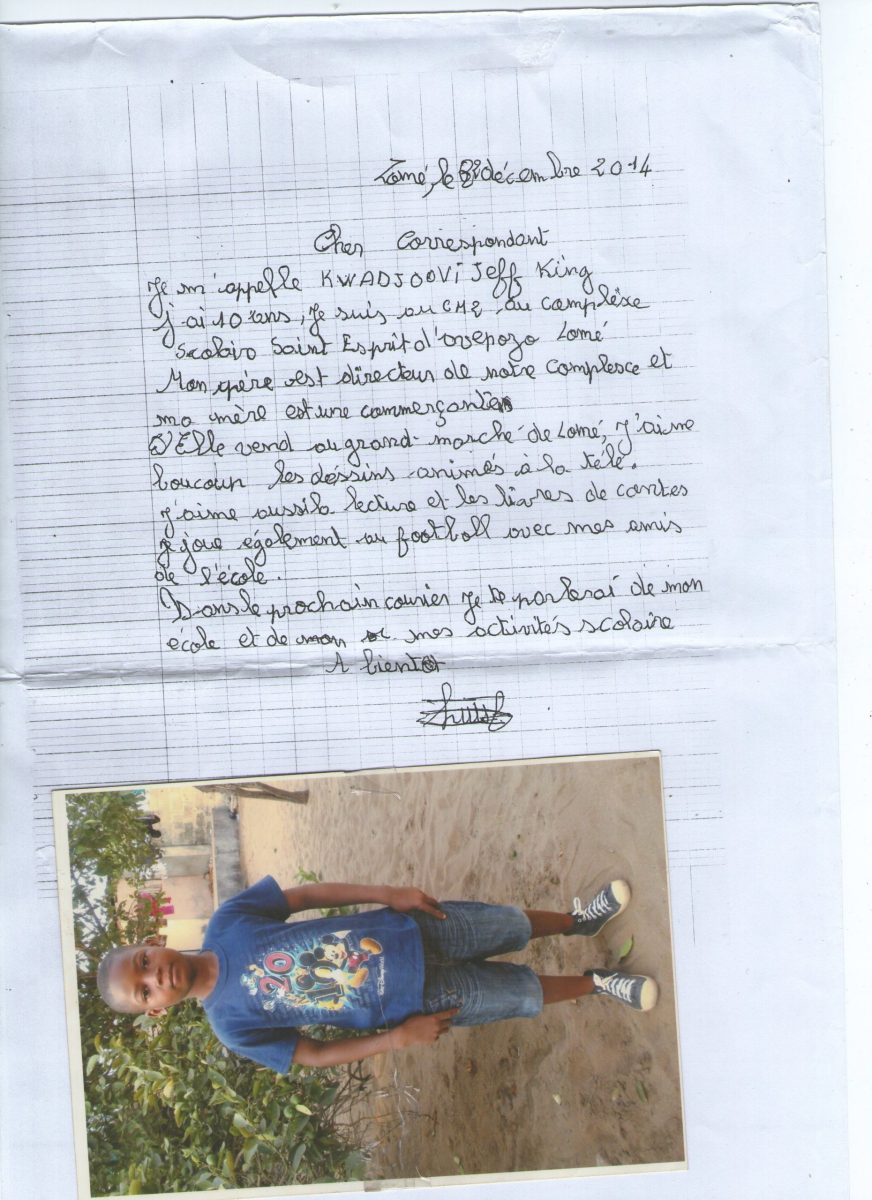 Lomé, le décembre 2014
Cher Correspondant
Je m'appelle KWADJOOVi Jeff King
j'ai 10 ans, Je suis au CM2 au complèxe
Scolairo Saint Esprit d'ovepozo Lomé
Mon père est directeur de notre Complesce et
ma mère est une commerçante
Elle vend au grand marché de Lomé, J'aime
boucoup les dessins animés à la télé.
J'aime aussi la lecture et les livres de contes
je joue également au football avec mes amis
de l'école.
Dans le prochain courier Je te parlerai de mon
école et de mon mes activités scolaire
A bientot
20
Walt Disney World